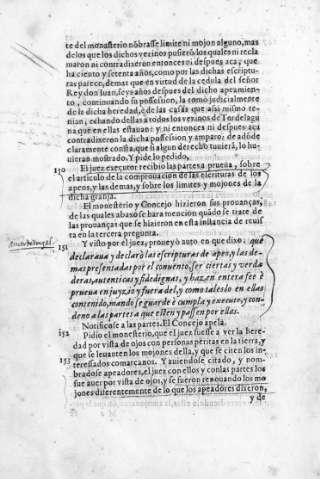 te del monasterio nõbrasse limite ni mojon alguno, mas
delos que los dichos vezinos pusierõ, los quales ni recla
maron ni contradixeron entonces ni despues aca; que
ha ciento y setenta años, como por las dichas escriptu-
ras parece, demas que en virtud de la cedula del señor
Rey don Iuan, seys años despues del dicho apeamien-
to, continuando su possession, la tomò judicialmente
de la dicha heredad, e de las casas que assi mismo te-
nian, echando dellas a todos los vezinos de Tordelagu
na que en ellas estauan: y ni entonces ni despues acà
contradixeron la dicha possession y amparo: de adõde
claramente consta, que si algun derecho tuuierã, lo hu
uieran mostrado. Y pide lo pedido,
150 El juez executor recibio las partes a prueua, sobre
el articulo de la comprouacion de las escrituras de los
apeos, y las demas, y sobre los limites y mojones de la
dicha granja.
El monesterio y Concejo hizieron sus prouanças,
de las quales abaxo se hara mencion quãdo se trate de
las prouanças que se hizieron en esta instancia de reuis
ta en la tercera pregunta.
151 Y visto por el juez, proueyò auto en que dixo: que
declaraua y declarò las escripturas de apeo, y las de-
mas presentadas por el conuento, ser ciertas y verda
deras, autenticas y fidedignas, y hazen entera fee è
prueua en juyzio y fuera del, y como tales lo en ellas
contenido, mando se guarde è cumpla y execute, y con-
deno a las partes a que esten y passen por ellas.
Notificose a las partes. El Concejo apela.
152 Pidio el monesterio, que el juez fuesse a ver la here
dad por vista de ojos con personas peritas en la tierra, y
que se leuanten los mojones della, y que se citen los in-
153 teressados comarcanos. Y auiendose citado, y nom-
bradose apeadores, el juez con ellos y con las partes los
fue a uer por vista de ojos, y se fueron renouando los mo
jones diferentemente de lo que los apeadores dixeron,
y de